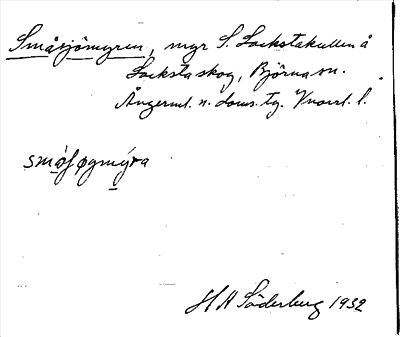 Småsjömyren, myr S. Lockstakullen å
Locksta skog, Björna sn.
Ångerml. n. doms. tg. V nord. l.
småʃøgmýra
H A Söderberg 1932